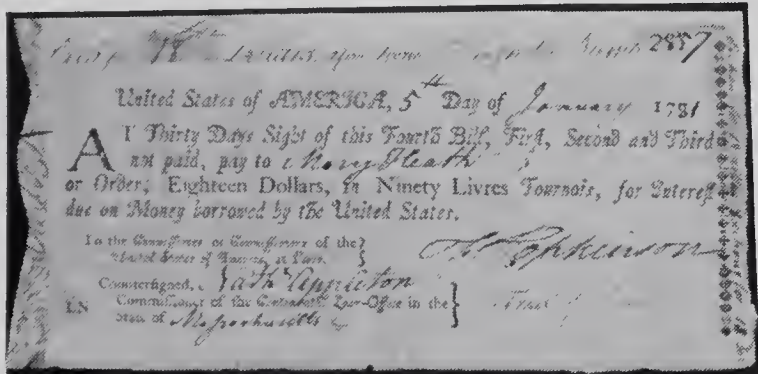 2887
United States of AMERICA, 5th Day of January 1781
AT Thirty Days Sight of this Fourth Bill, First, Second and Third
not paid, pay to Mary Heath
or Order; Eighteen Dollars, in Ninety Livres Tournois, for Interest
due on Money borrowed by the United States.
To the Commissioner or Commissioners of the
United States of America, at Paris.
F Hopkinson
Countersigned, Nath Appleton
Commissioner of the Continental Loan-Office in the
State of Massachusetts